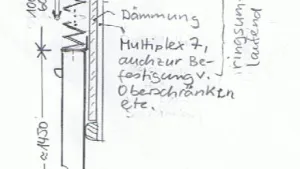 Dämmung
Multiplex 7,
auch zur Be-
festigung v.
Oberschränken
etc.
ringsum
laufend
≈1450